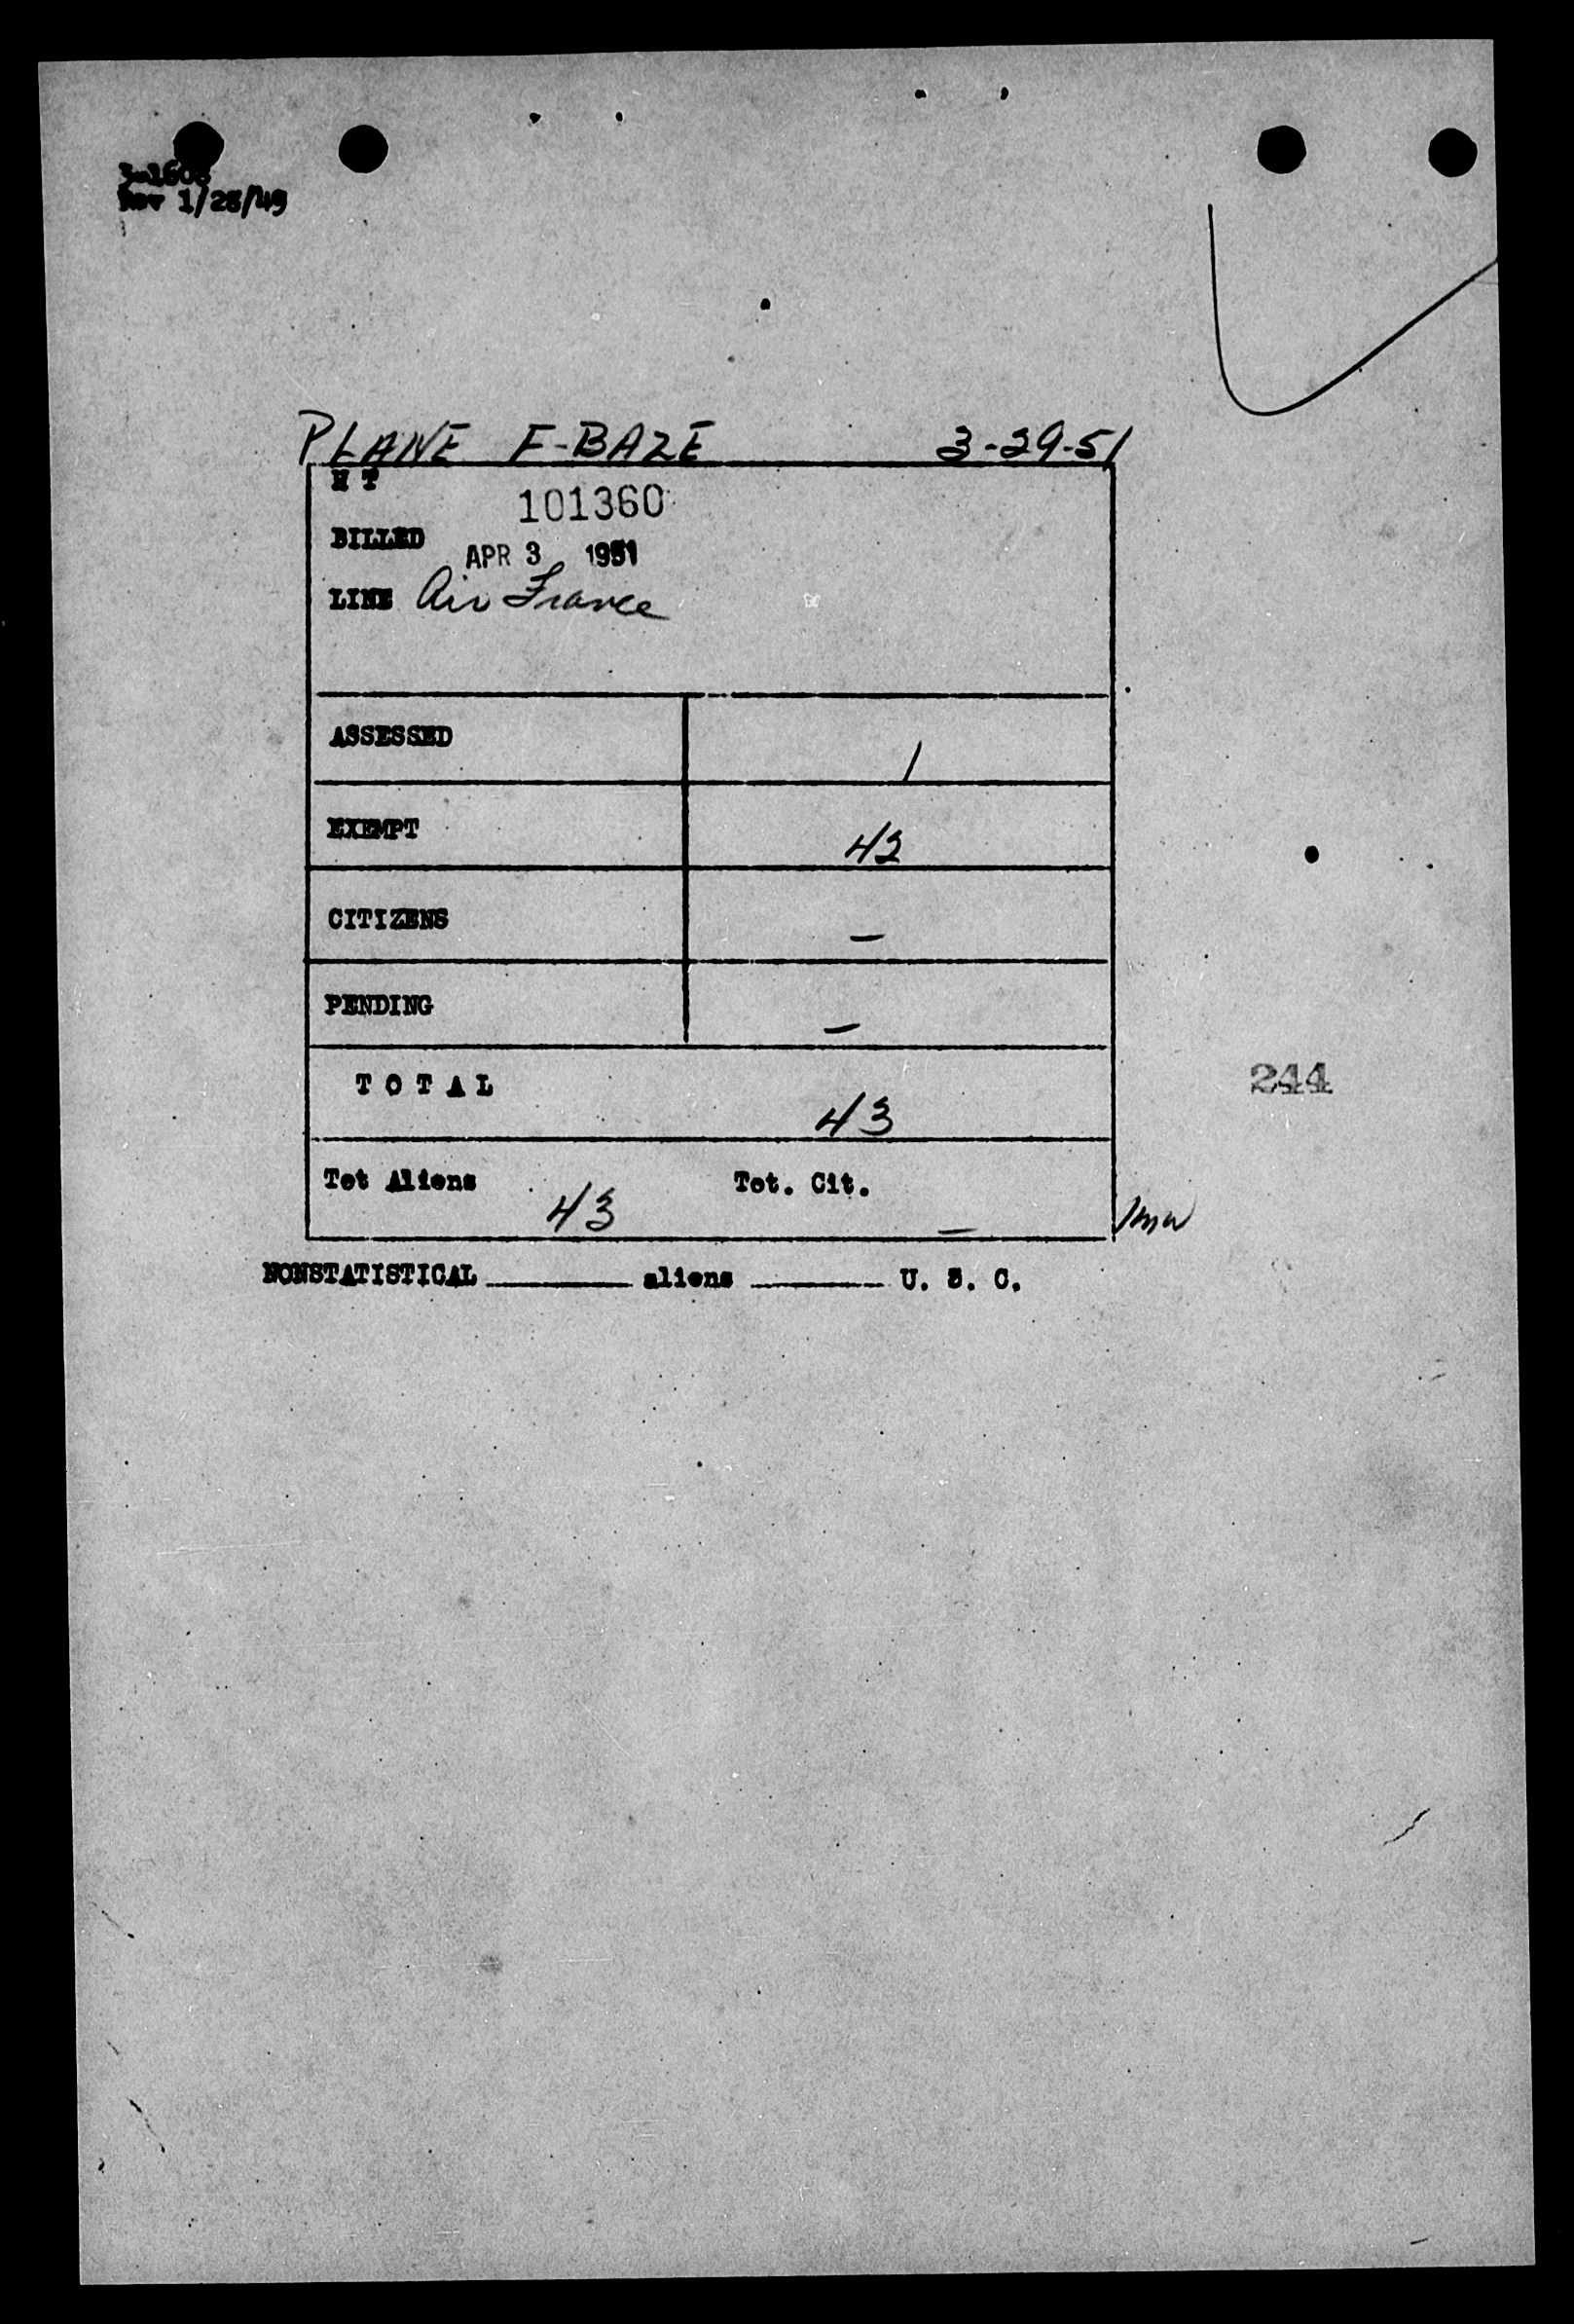 Rev 1/28/49
PLANE F-BAZE 3-29-51
H T
101360
BILLED
APR 3 1951
LINE Air France
ASSESSED 1
EXEMPT 42
CITIZENS –
PENDING –
TOTAL 43
244
Tot Aliens 43 Tot. Cit. –
NONSTATISTICAL ______ aliens ______ U. S. C.